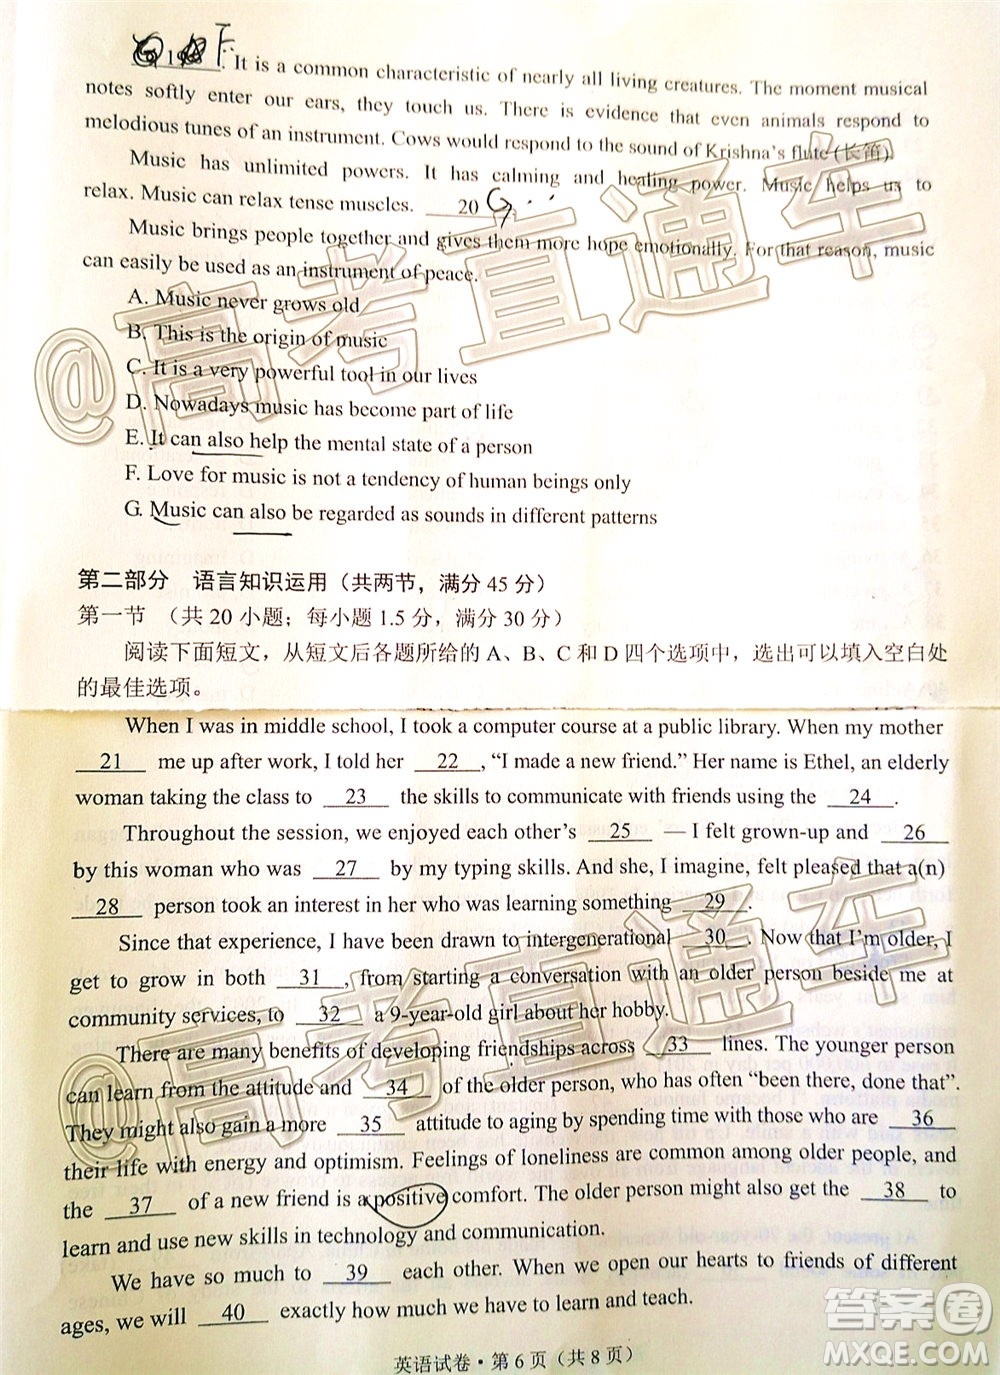 19 F. It is a common characteristic of nearly all living creatures. The moment musical
notes softly enter our ears, they touch us. There is evidence that even animals respond to
melodious tunes of an instrument. Cows would respond to the sound of Krishna's flute (长笛).
Music has unlimited powers. It has calming and healing power. Music helps us to
relax. Music can relax tense muscles. 20 G
Music brings people together and gives them more hope emotionally. For that reason, music
can easily be used as an instrument of peace.
A. Music never grows old
B. This is the origin of music
C. It is a very powerful tool in our lives
D. Nowadays music has become part of life
E. It can also help the mental state of a person
F. Love for music is not a tendency of human beings only
G. Music can also be regarded as sounds in different patterns
第二部分 语言知识运用（共两节，满分 45 分）
第一节 （共 20 小题；每小题 1.5 分，满分 30 分）
阅读下面短文，从短文后各题所给的 A、B、C 和 D 四个选项中，选出可以填入空白处
的最佳选项。
When I was in middle school, I took a computer course at a public library. When my mother
21 me up after work, I told her 22 , “I made a new friend.” Her name is Ethel, an elderly
woman taking the class to 23 the skills to communicate with friends using the 24 .
Throughout the session, we enjoyed each other's 25 — I felt grown-up and 26
by this woman who was 27 by my typing skills. And she, I imagine, felt pleased that a(n)
28 person took an interest in her who was learning something 29 .
Since that experience, I have been drawn to intergenerational 30 . Now that I'm older, I
get to grow in both 31 , from starting a conversation with an older person beside me at
community services, to 32 a 9-year-old girl about her hobby.
There are many benefits of developing friendships across 33 lines. The younger person
can learn from the attitude and 34 of the older person, who has often “been there, done that”.
They might also gain a more 35 attitude to aging by spending time with those who are 36
their life with energy and optimism. Feelings of loneliness are common among older people, and
the 37 of a new friend is a positive comfort. The older person might also get the 38 to
learn and use new skills in technology and communication.
We have so much to 39 each other. When we open our hearts to friends of different
ages, we will 40 exactly how much we have to learn and teach.
英语试卷·第 6 页（共 8 页）
@高考直通车
@高考直通车
答案圈
MXQE.COM